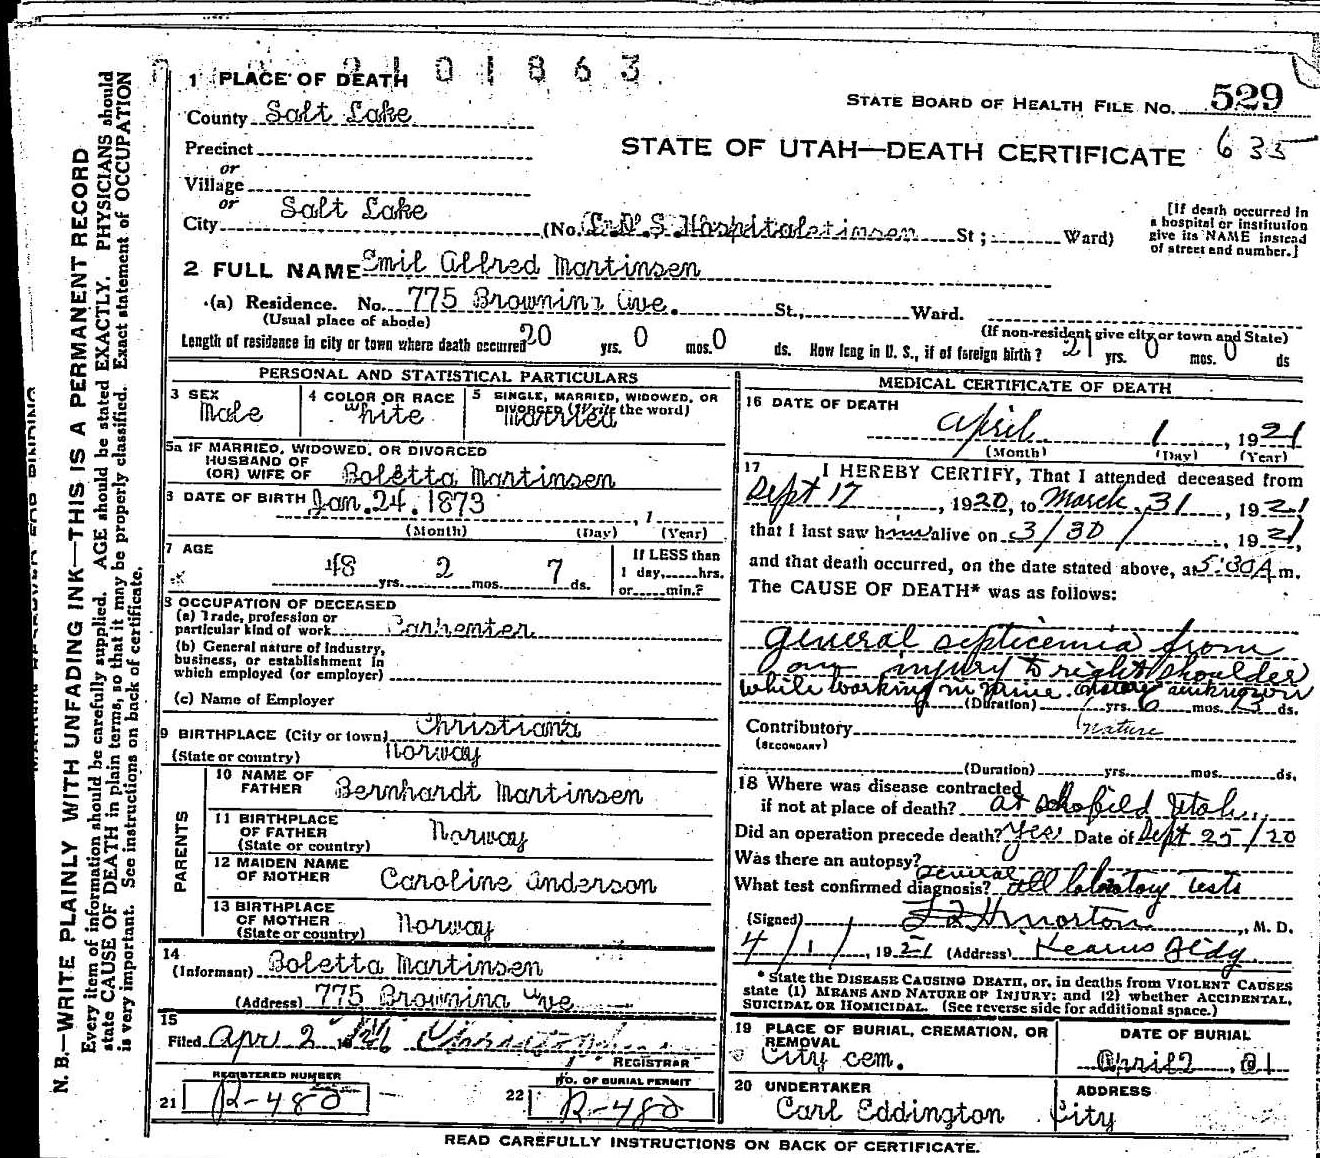 2101863
1 PLACE OF DEATH
County Salt Lake
STATE BOARD OF HEALTH FILE No. 529
Precinct
STATE OF UTAH—DEATH CERTIFICATE 635
or
Village
or
City Salt Lake (No. L. D. S. Hospital St; Ward)
[If death occurred in
a hospital or institution
give its NAME instead
of street and number.]
2 FULL NAME Emil Alfred Martinsen
(a) Residence. No. 775 Browning Ave. St., Ward.
(Usual place of abode)
(If non-resident give city or town and State)
Length of residence in city or town where death occurred 20 yrs. 0 mos. 0 ds. How long in U. S., if of foreign birth? 21 yrs. 0 mos. 0 ds
PERSONAL AND STATISTICAL PARTICULARS
3 SEX
Male
4 COLOR OR RACE
White
5 SINGLE, MARRIED, WIDOWED, OR
DIVORCED (Write the word)
Married
5a IF MARRIED, WIDOWED, OR DIVORCED
HUSBAND OF
(OR) WIFE OF Boletta Martinsen
6 DATE OF BIRTH Jan. 24. 1873
, 1
(Month) (Day) (Year)
7 AGE
48 yrs. 2 mos. 7 ds.
If LESS than
1 day, hrs.
or min.?
8 OCCUPATION OF DECEASED
(a) Trade, profession or
particular kind of work Carpenter
(b) General nature of Industry,
business, or establishment in
which employed (or employer)
(c) Name of Employer
9 BIRTHPLACE (City or town) Christiana
(State or country) Norway
PARENTS
10 NAME OF
FATHER Bernhardt Martinsen
11 BIRTHPLACE
OF FATHER
(State or country) Norway
12 MAIDEN NAME
OF MOTHER Caroline Anderson
13 BIRTHPLACE
OF MOTHER
(State or country) Norway
14
(Informant) Boletta Martinsen
(Address) 775 Browning Ave
15
Filed Apr 2
REGISTRAR
REGISTERED NUMBER
21 R-480
NO. OF BURIAL PERMIT
22 R-480
MEDICAL CERTIFICATE OF DEATH
16 DATE OF DEATH
April 1, 1921
(Month) (Day) (Year)
17 I HEREBY CERTIFY, That I attended deceased from
Sept 17, 1920, to March 31, 1921
that I last saw him alive on 3/30/, 1921,
and that death occurred, on the date stated above, at 5:30 A m.
The CAUSE OF DEATH* was as follows:
General septicemia from
an injury to right shoulder
while working in mine. nature unknown
(Duration) yrs. 6 mos. 13 ds.
Contributory nature
(SECONDARY)
(Duration) yrs. mos. ds.
18 Where was disease contracted
if not at place of death? at Schofield Utah
Did an operation precede death? Yes Date of Sept 25/20
Was there an autopsy?
What test confirmed diagnosis? General all laboratory tests
(Signed) Morton, M. D.
4/1/, 1921 (Address) Kearns Bldg
* State the DISEASE CAUSING DEATH, or, in deaths from VIOLENT CAUSES
state (1) MEANS AND NATURE OF INJURY; and (2) whether ACCIDENTAL,
SUICIDAL OR HOMICIDAL. (See reverse side for additional space.)
19 PLACE OF BURIAL, CREMATION, OR
REMOVAL
City Cem.
DATE OF BURIAL
April 2, 21
20 UNDERTAKER
Carl Eddington
ADDRESS
City
READ CAREFULLY INSTRUCTIONS ON BACK OF CERTIFICATE.
N. B.—WRITE PLAINLY WITH UNFADING INK—THIS IS A PERMANENT RECORD
Every item of information should be carefully supplied. AGE should be stated EXACTLY. PHYSICIANS should
state CAUSE OF DEATH in plain terms, so that it may be properly classified. Exact statement of OCCUPATION
is very important. See instructions on back of certificate.